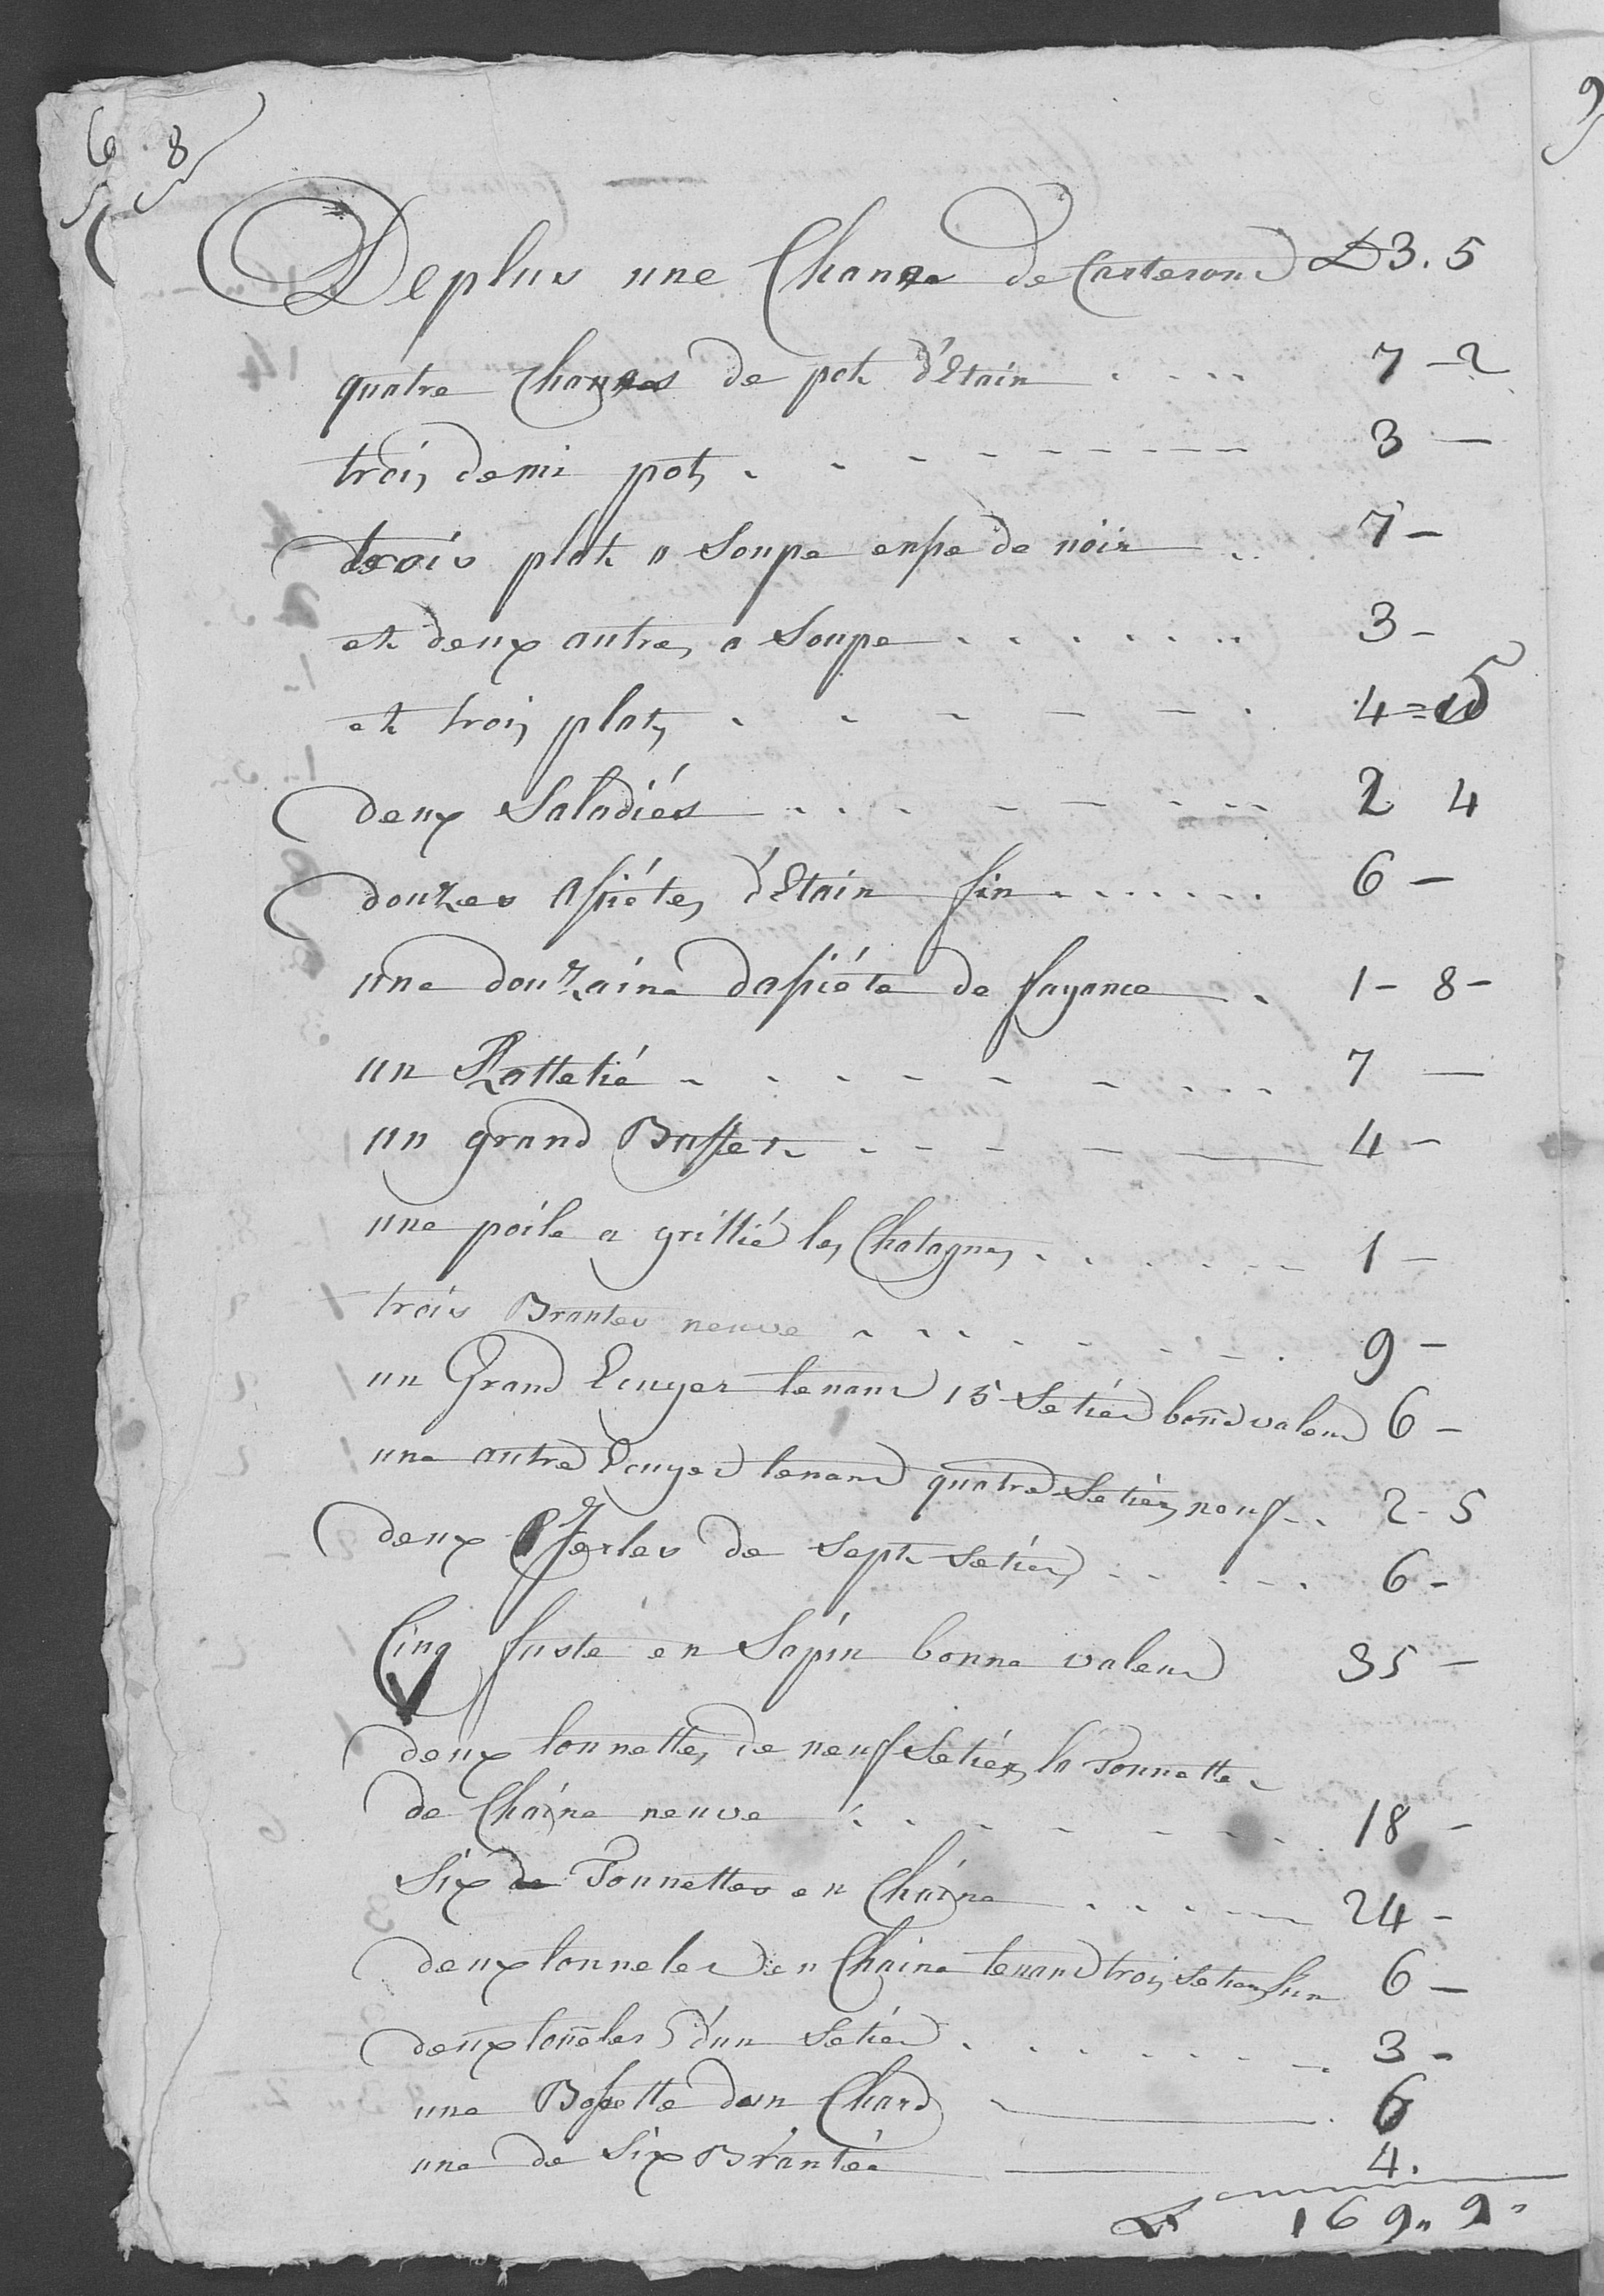 6 8
De plus une Channe de Carteron L 3. 5
quatre channes de pot d'Etain .... 7 - 2
trois demi pots . - - - - - - - 3 -
trois plat a Soupe espe de noix .. 7 -
et deux autres a Soupe . . . . . . . . 3 -
et trois plats . - - - - . 4 = 5
deux Saladiés . . . - - - - - 2 4
douzes assiétes d'Etain fin . . . . . . 6 -
une douzaine dassiéte de fayance . . 1 - 8 -
un Rattelié - . . - - - - . . . 7 -
un grand Buffet . - - - - 4 -
une poile a grillié les Chatagnes . . . . . . - - 1 -
trois Brantes neuve . . . . . - - - . 9 -
un Grand Cuyer tenant 15 Setier bonne valeur 6 -
une autre Cuyer tenant quatre Setiers neuf - . 2 - 5
deux Gerles de Sept Setiers - . . . - . 6 -
Cinq fuste en Sapin bonne valeur 35 -
deux tonnettes de neuf Setiers la Tonnette
de Chaine neuve . . . - - - - - . 18 -
Six Tonnettes en Chaine . . . . - - 24 -
deux tonneler en Chaine tenant trois Setiers l'un 6 -
deux toneler d'un Setier . . . . . . - - . 3 -
une Bossette dun Chard 6
une de Six Brantée 4.
L 169 " 9 "
9